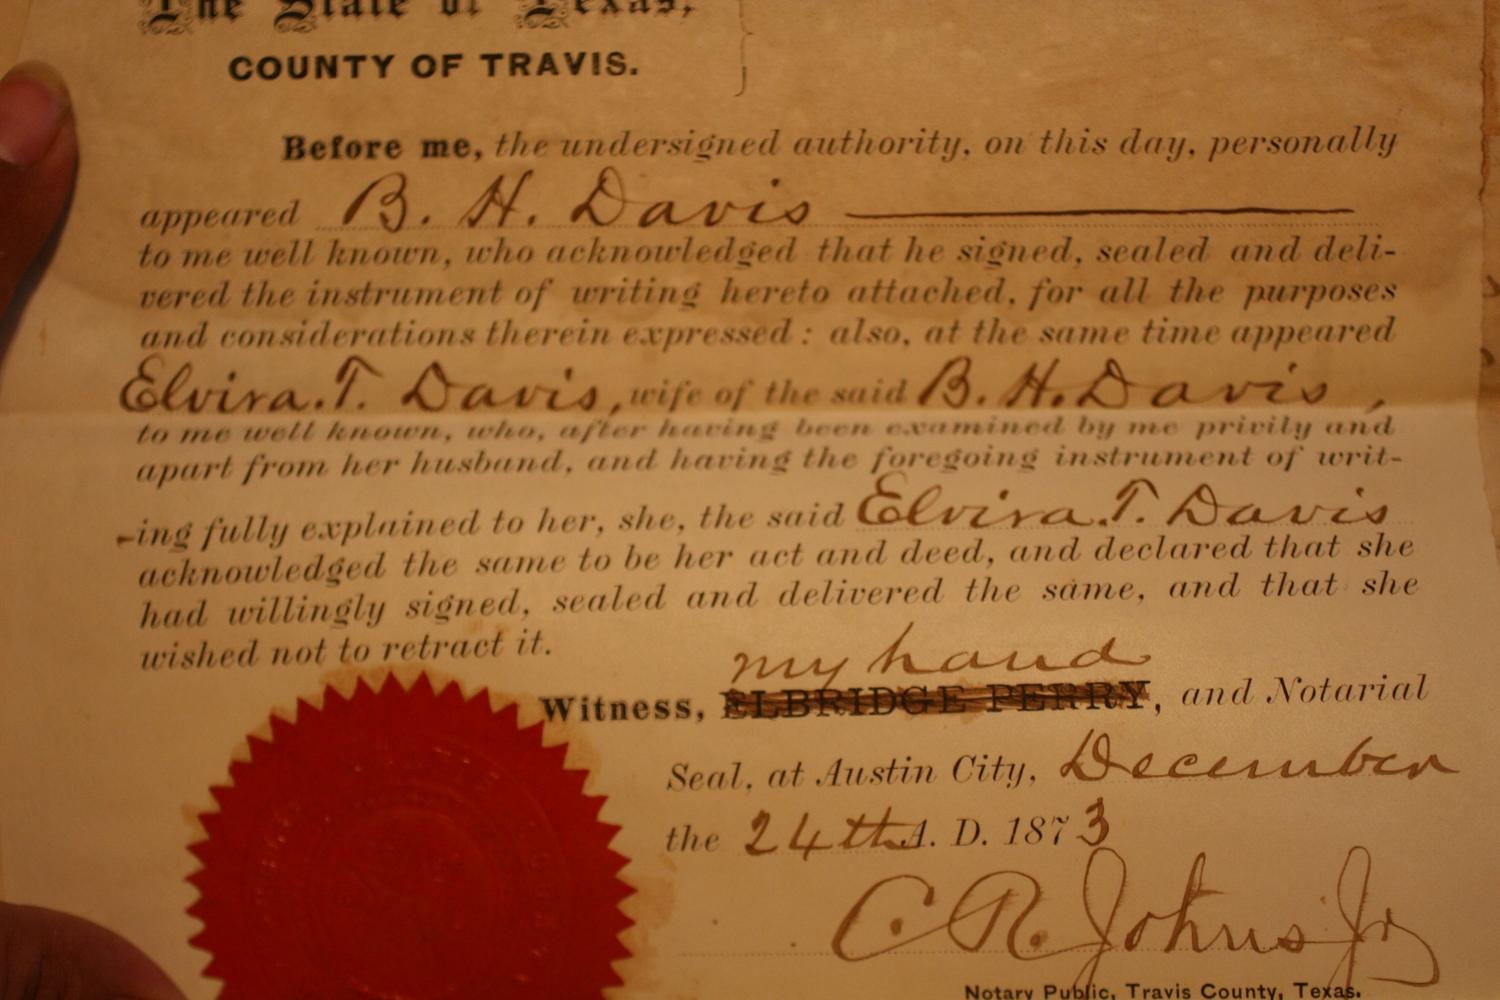 The State of Texas,
COUNTY OF TRAVIS.
Before me, the undersigned authority, on this day, personally
appeared B. H. Davis
to me well known, who acknowledged that he signed, sealed and deli-
vered the instrument of writing hereto attached, for all the purposes
and considerations therein expressed : also, at the same time appeared
Elvira. T. Davis, wife of the said B. H. Davis,
to me well known, who, after having been examined by me privily and
apart from her husband, and having the foregoing instrument of writ-
-ing fully explained to her, she, the said Elvira. T. Davis
acknowledged the same to be her act and deed, and declared that she
had willingly signed, sealed and delivered the same, and that she
wished not to retract it.
my hand
Witness, ELBRIDGE PERRY, and Notarial
Seal, at Austin City, December
the 24th A. D. 1873
C. R. Johns Jr
Notary Public, Travis County, Texas.